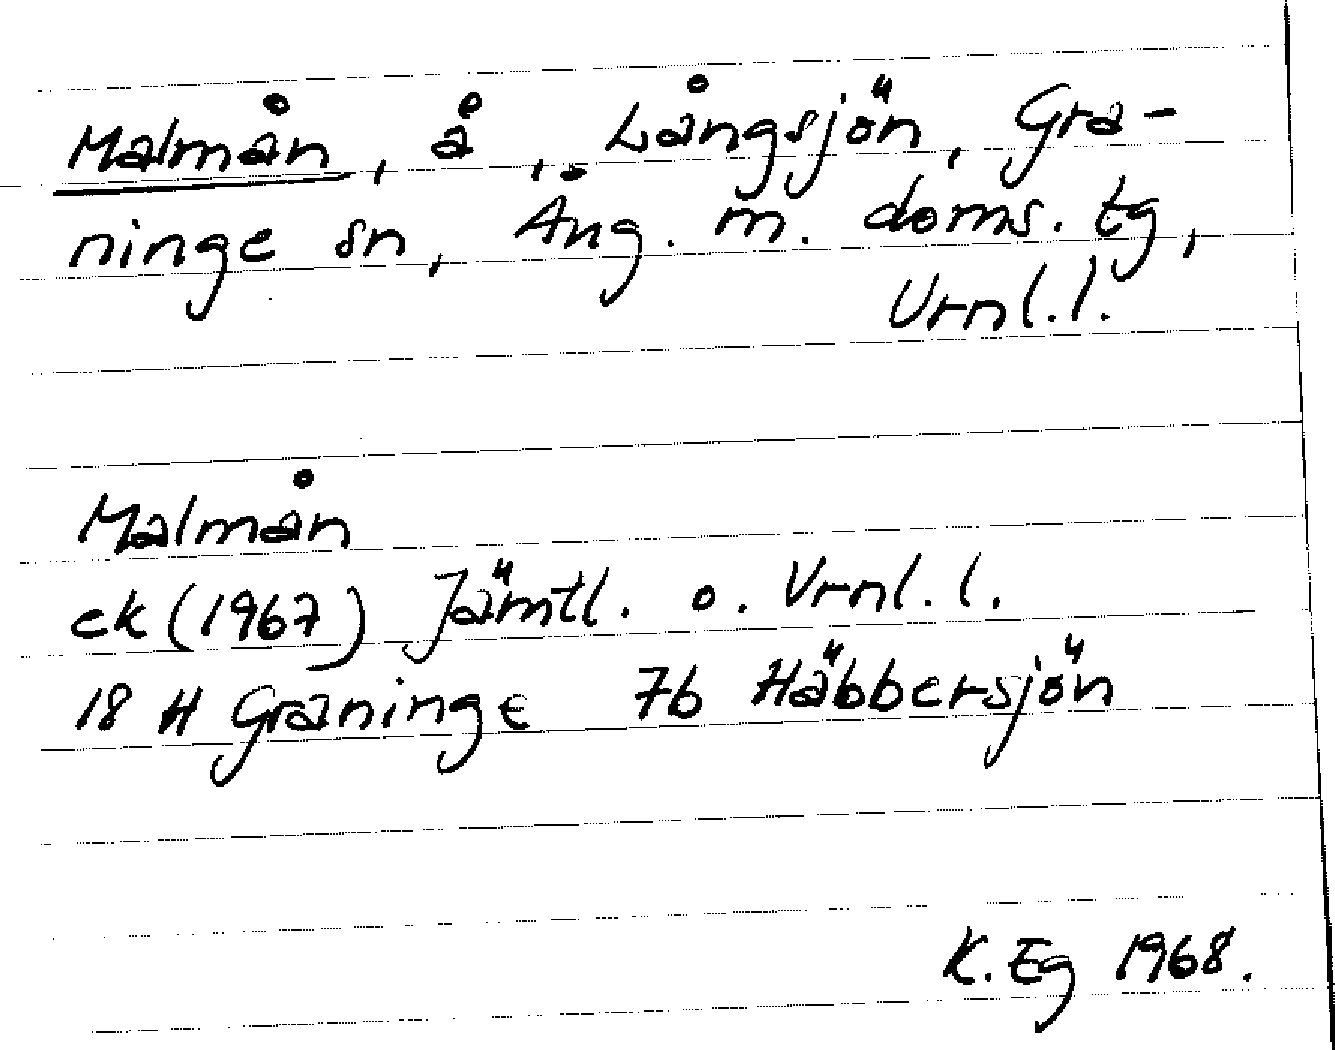 Malmån, å, Långsjön, Gra-
ninge sn, Ång. m. doms. tg,
Vrnl.l.
Malmån
ek (1967) Jämtl. o. Vrnl.l.
18 H Graninge 7b Häbbersjön
K. Eg 1968.